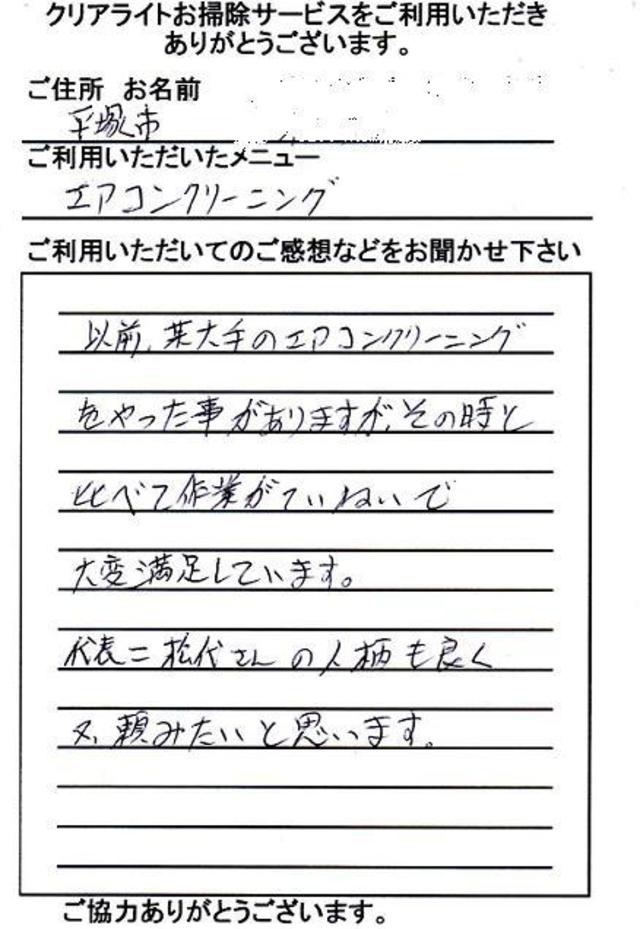 クリアライトお掃除サービスをご利用いただき
ありがとうございます。
ご住所 お名前
平塚市
ご利用いただいたメニュー
エアコンクリーニング
ご利用いただいてのご感想などをお聞かせ下さい
以前、某大手のエアコンクリーニング
をやった事がありますが、その時と
比べて作業がていねいで
大変満足しています。
代表二松代さんの人柄も良く
又、頼みたいと思います。
ご協力ありがとうございます。